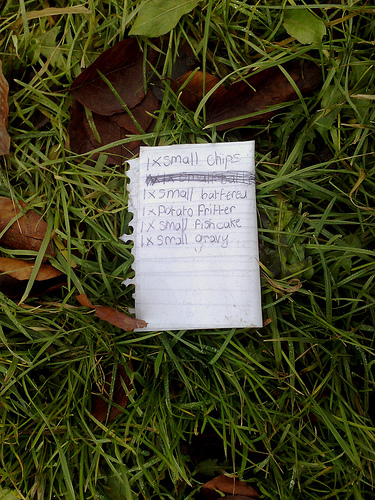 1 x small chips
1 x small battered
1 x potato Fritter
1 x small fishcake
1 x small gravy